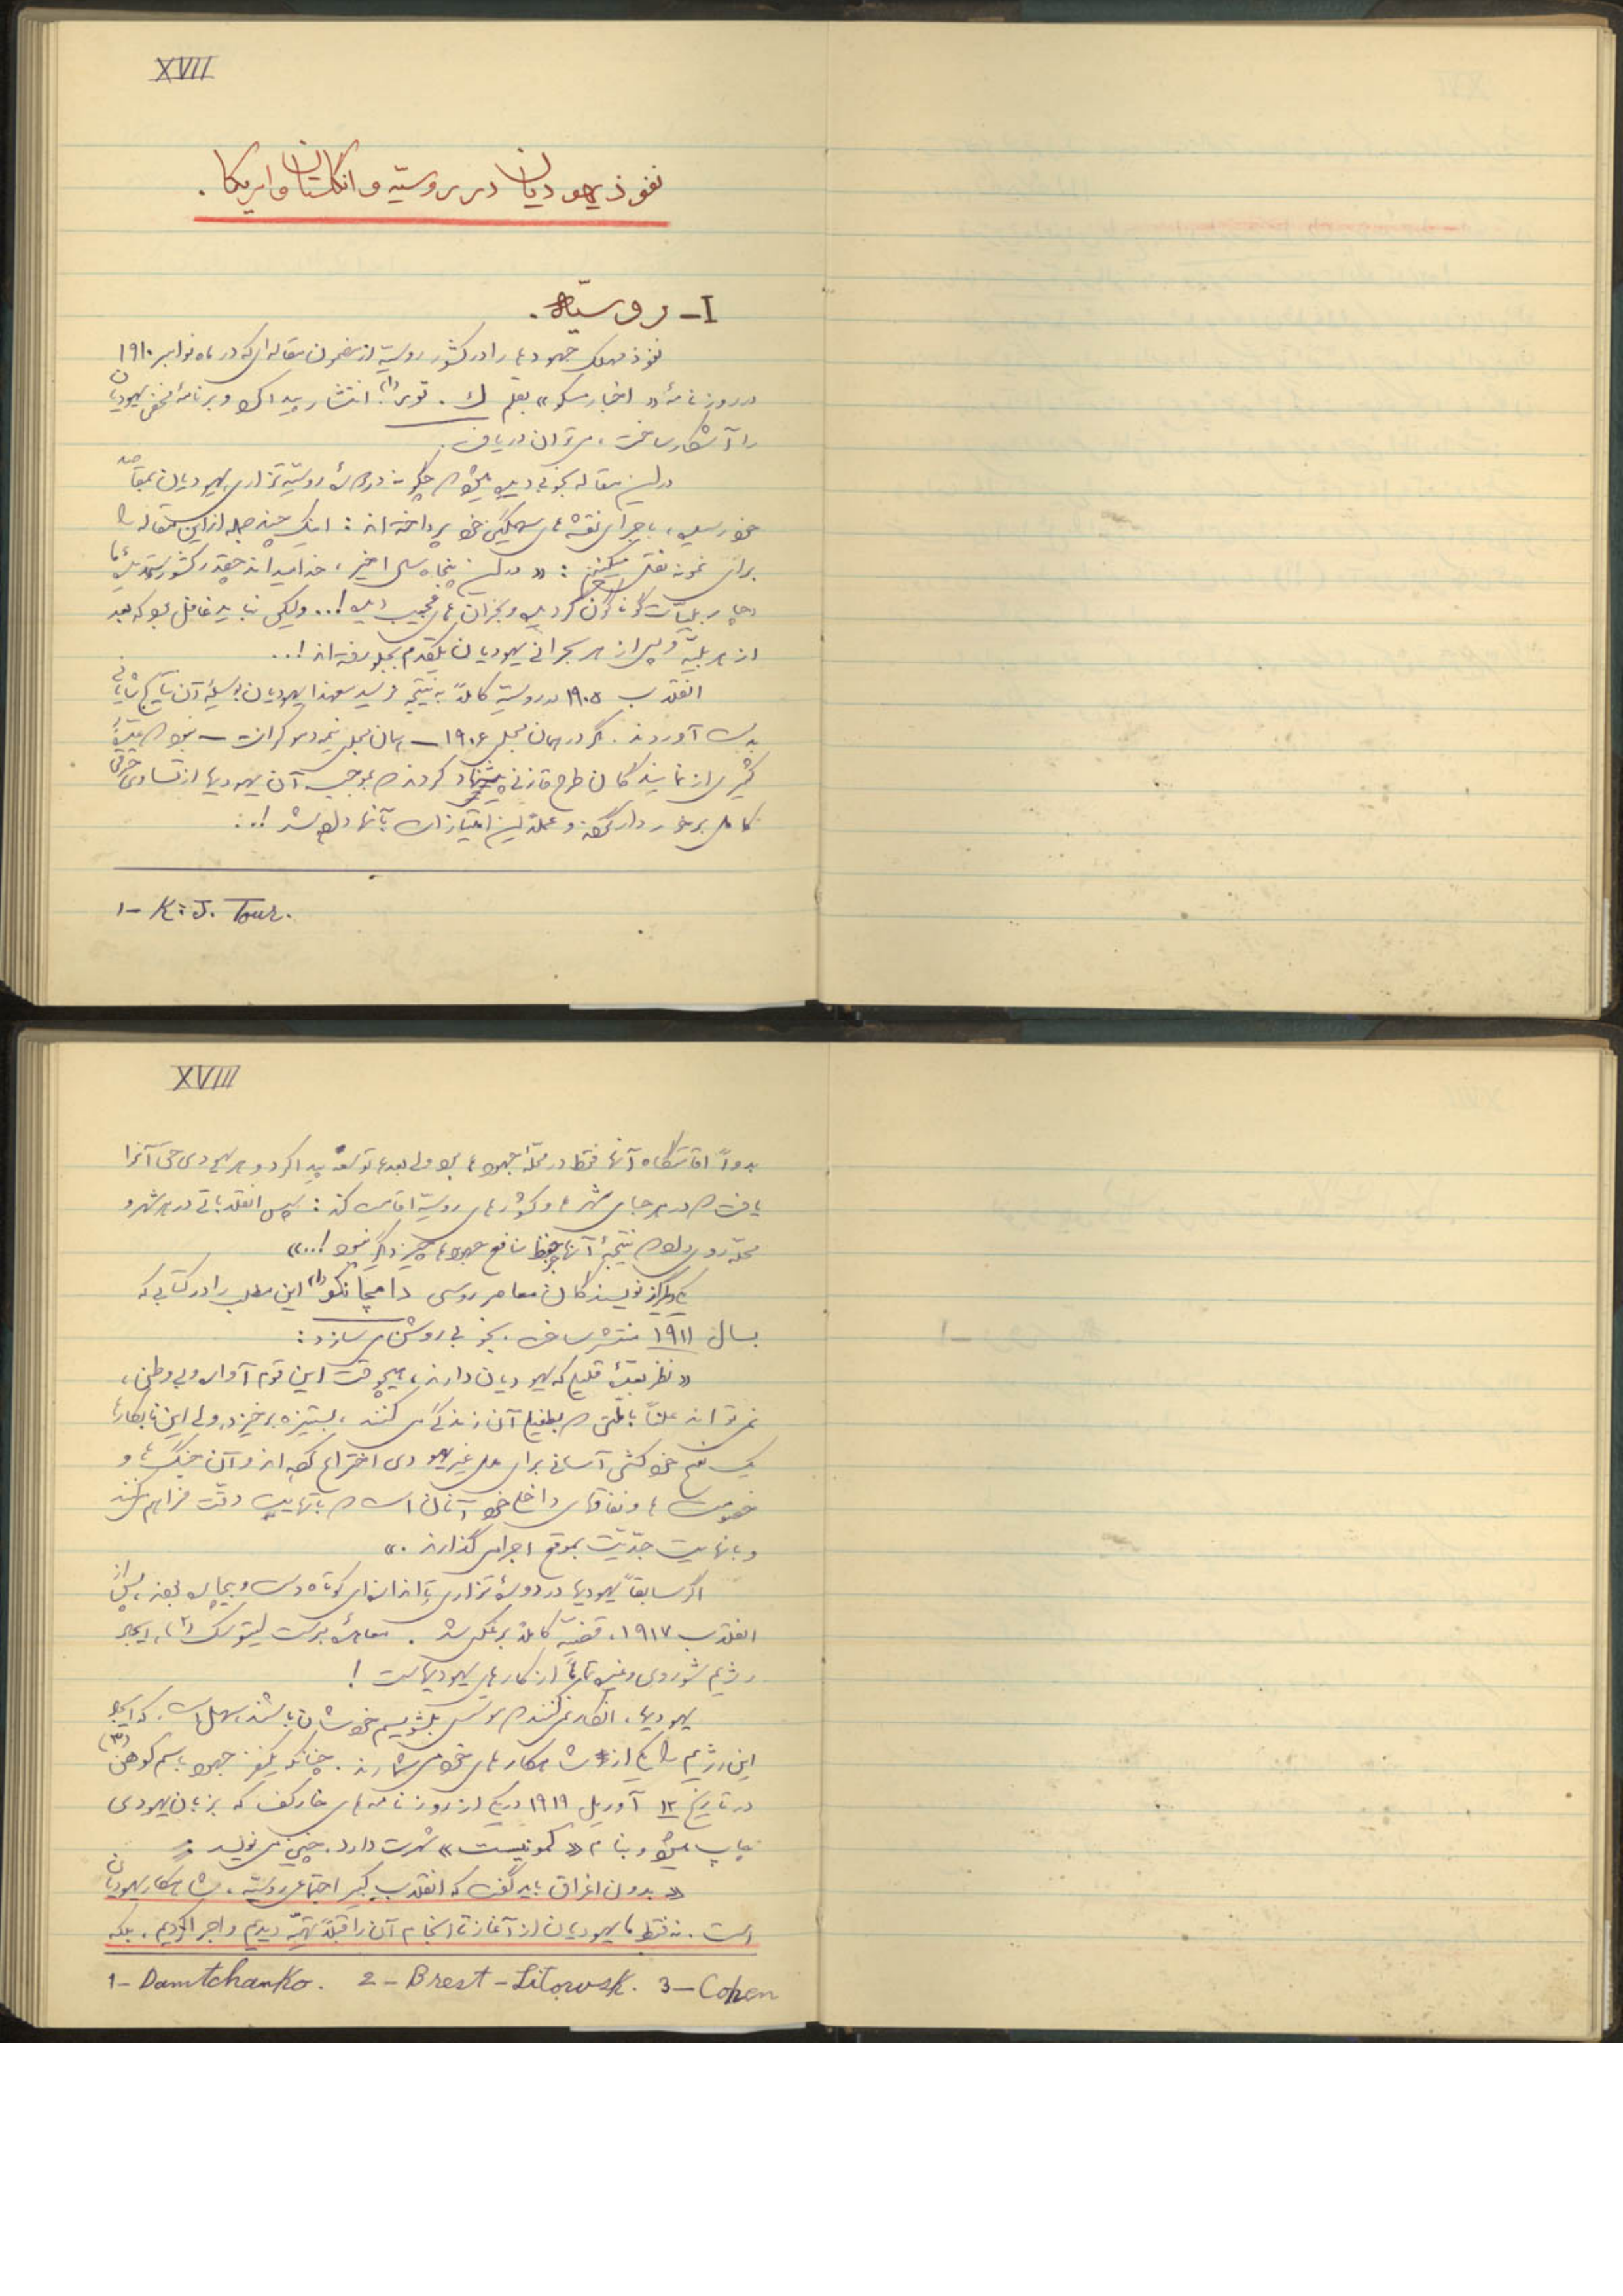 XVII
نفوذ یهودیان در روسیّه و انگلستان و امریکا.
I- روسیّه.
نفوذ مهلک جهودها را در کشور روسیّه از مضمون مقاله‌ای که در ماه نوامبر ۱۹۱۰
در روزنامهٔ «اخبار مسکو» بقلم ك. تور(۱) انتشار پیدا کرد و برنامهٔ مخفی یهودیان
را آشکار ساخت، میتوان دریافت.
در این مقاله بخوبی دیده میشود که چگونه در دورهٔ روسیّه تزاری یهودیان بمقاصد
خود رسیده، باجرای نقشه‌های سهمگین خود پرداخته‌اند: اینک چند جمله از این مقاله را
برای نمونه نقل میکنیم: «در این پنجاه سال اخیر، خدا میداند چقدر کشور ستمدیدهٔ ما
دچار بلیّات گوناگون گردیده و بحران‌های عجیب دیده!... ولیکن نباید غافل بود که بعد
از هر بلیّه و پس از هر بحرانی یهودیان یکقدم بجلو رفته‌اند!...
انقلاب ۱۹۰۵ در روسیّه کاملاً به نتیجه نرسید معهذا یهودیان بوسیلهٔ آن نتایج شایانی
بدست آوردند. مگر در همان مجلس ۱۹۰۶ — همان مجلس نیمه دموکرات — نبود که عدّهٔ
کثیری از نمایندگان طرح قانونی پیشنهاد کردند که بموجب آن یهودیها از تساوی حقوق
کامل برخوردار گشته و عملاً این امتیازات بآنها داده شد!..:
1- K. J. Tour.
XVIII
بدواً اقامتگاه آنها فقط در محلّهٔ جهودها بود ولی بعدها توسعه پیدا کرد و هر یهودی حق آنرا
یافت که در هر جای شهرها و کشورهای روسیّه اقامت کند: سپس انقلاباتی در هر شهر و
محلّه روی داد که نتیجهٔ آنها جز حفظ منافع جهودها چیز دیگر نبود!...»
یکی دیگر از نویسندگان معاصر روسی دامچانکو(۱) این مطلب را در کتابی که
بسال ۱۹۱۱ منتشر ساخت. بخوبی روشن میسازد:
«نظر بعدّهٔ قلیلی که یهودیان دارند، هیچوقت این قوم آواره و بی وطن،
نمیتواند علناً با ملّتی که بطفیل آن زندگی میکنند، بستیزه برخیزد، ولی این نابکارها
یک نوع خودکشی آسانی برای ملل غیر یهودی اختراع کرده‌اند و آن جنگها و
خصومت‌ها و نفاقهای داخلی خود آنان است که با نهایت دقّت فراهم میکنند
و با نهایت جدّیّت بموقع اجرا میگذارند.»
اگر سابقاً یهودیها در دورهٔ تزاری تا اندازه‌ای کوتاه دست و بیچاره بودند، پس از
انقلاب ۱۹۱۷، قضیّه کاملاً برعکس شد. معاهدهٔ برست لیتوسک(۲)، ایجاد
رژیم شوروی و غیره تماماً از کارهای یهودیهاست!
یهودیها، انکار نمیکنند که مؤسس بلشویسم خودشان باشند، سهل است. که ایجاد
این رژیم را یکی از شاهکارهای خود میشمارند. چنانکه یکنفر جهود باسم کوهن(۳)
در تاریخ ۱۲ آوریل ۱۹۱۹ در یکی از روزنامه‌های خارکف که بزبان یهودی
چاپ میشود و بنام «کمونیست» شهرت دارد. چنین مینویسد:
«بدون اغراق باید گفت که انقلاب کبیر اجتماعی روسیّه، شاهکار یهودیان
است. نه فقط ما یهودیان از آغاز تا انجام آن را قبلاً تهیّه دیدیم و اجرا کردیم. بلکه
1- Damtchanko. 2- Brest-Litowsk. 3- Cohen